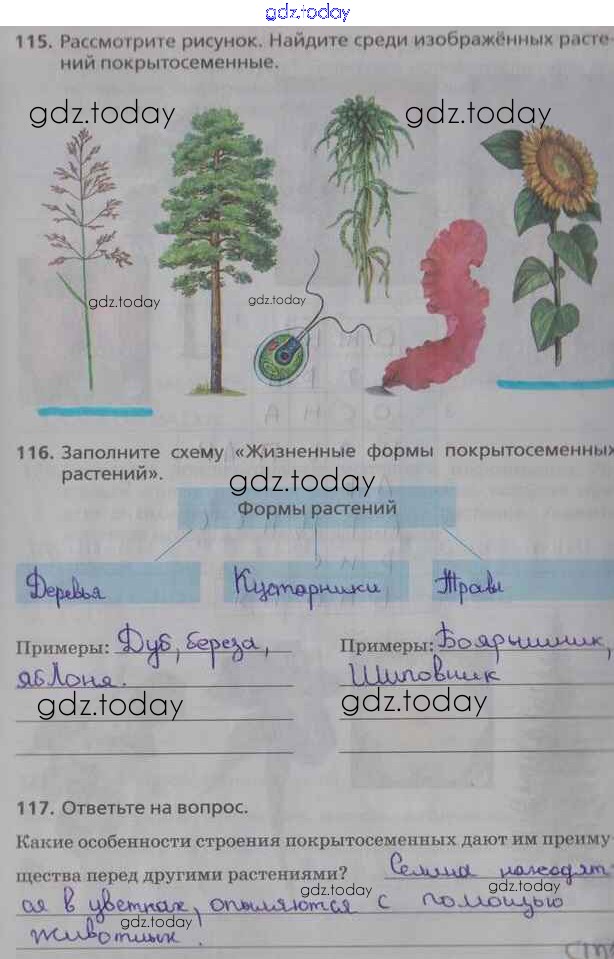 gdz.today
115. Рассмотрите рисунок. Найдите среди изображённых расте-
ний покрытосеменные.
gdz.today gdz.today
gdz.today gdz.today
116. Заполните схему «Жизненные формы покрытосеменных
растений».
gdz.today
Формы растений
Деревья Кустарники Травы
Примеры: Дуб, береза, Примеры: Боярышник,
яблоня. Шиповник
gdz.today gdz.today
117. Ответьте на вопрос.
Какие особенности строения покрытосеменных дают им преиму-
щества перед другими растениями? Семена находят-
gdz.today gdz.today
ся в цветках, опыляются с помощью
животных.
gdz.today